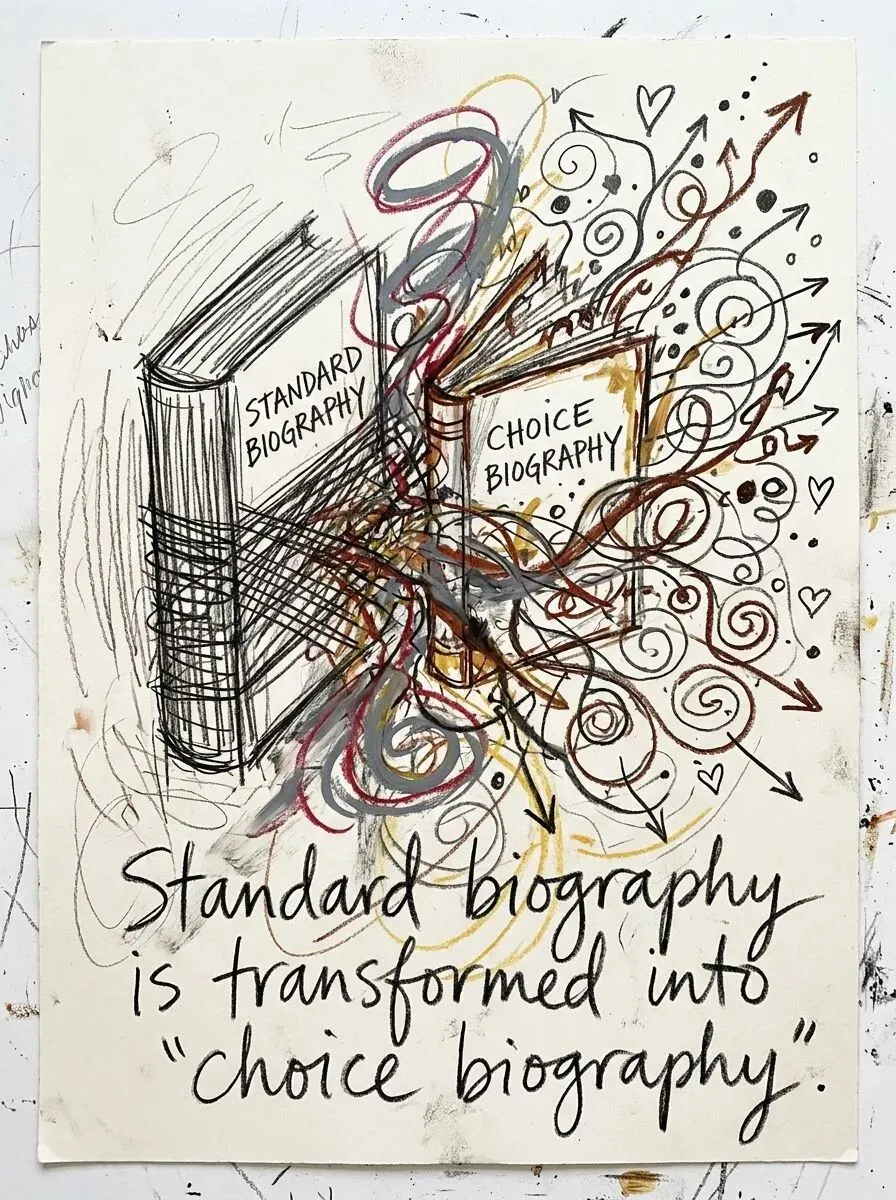 STANDARD
BIOGRAPHY
CHOICE
BIOGRAPHY
Standard biography
is transformed into
"choice biography".